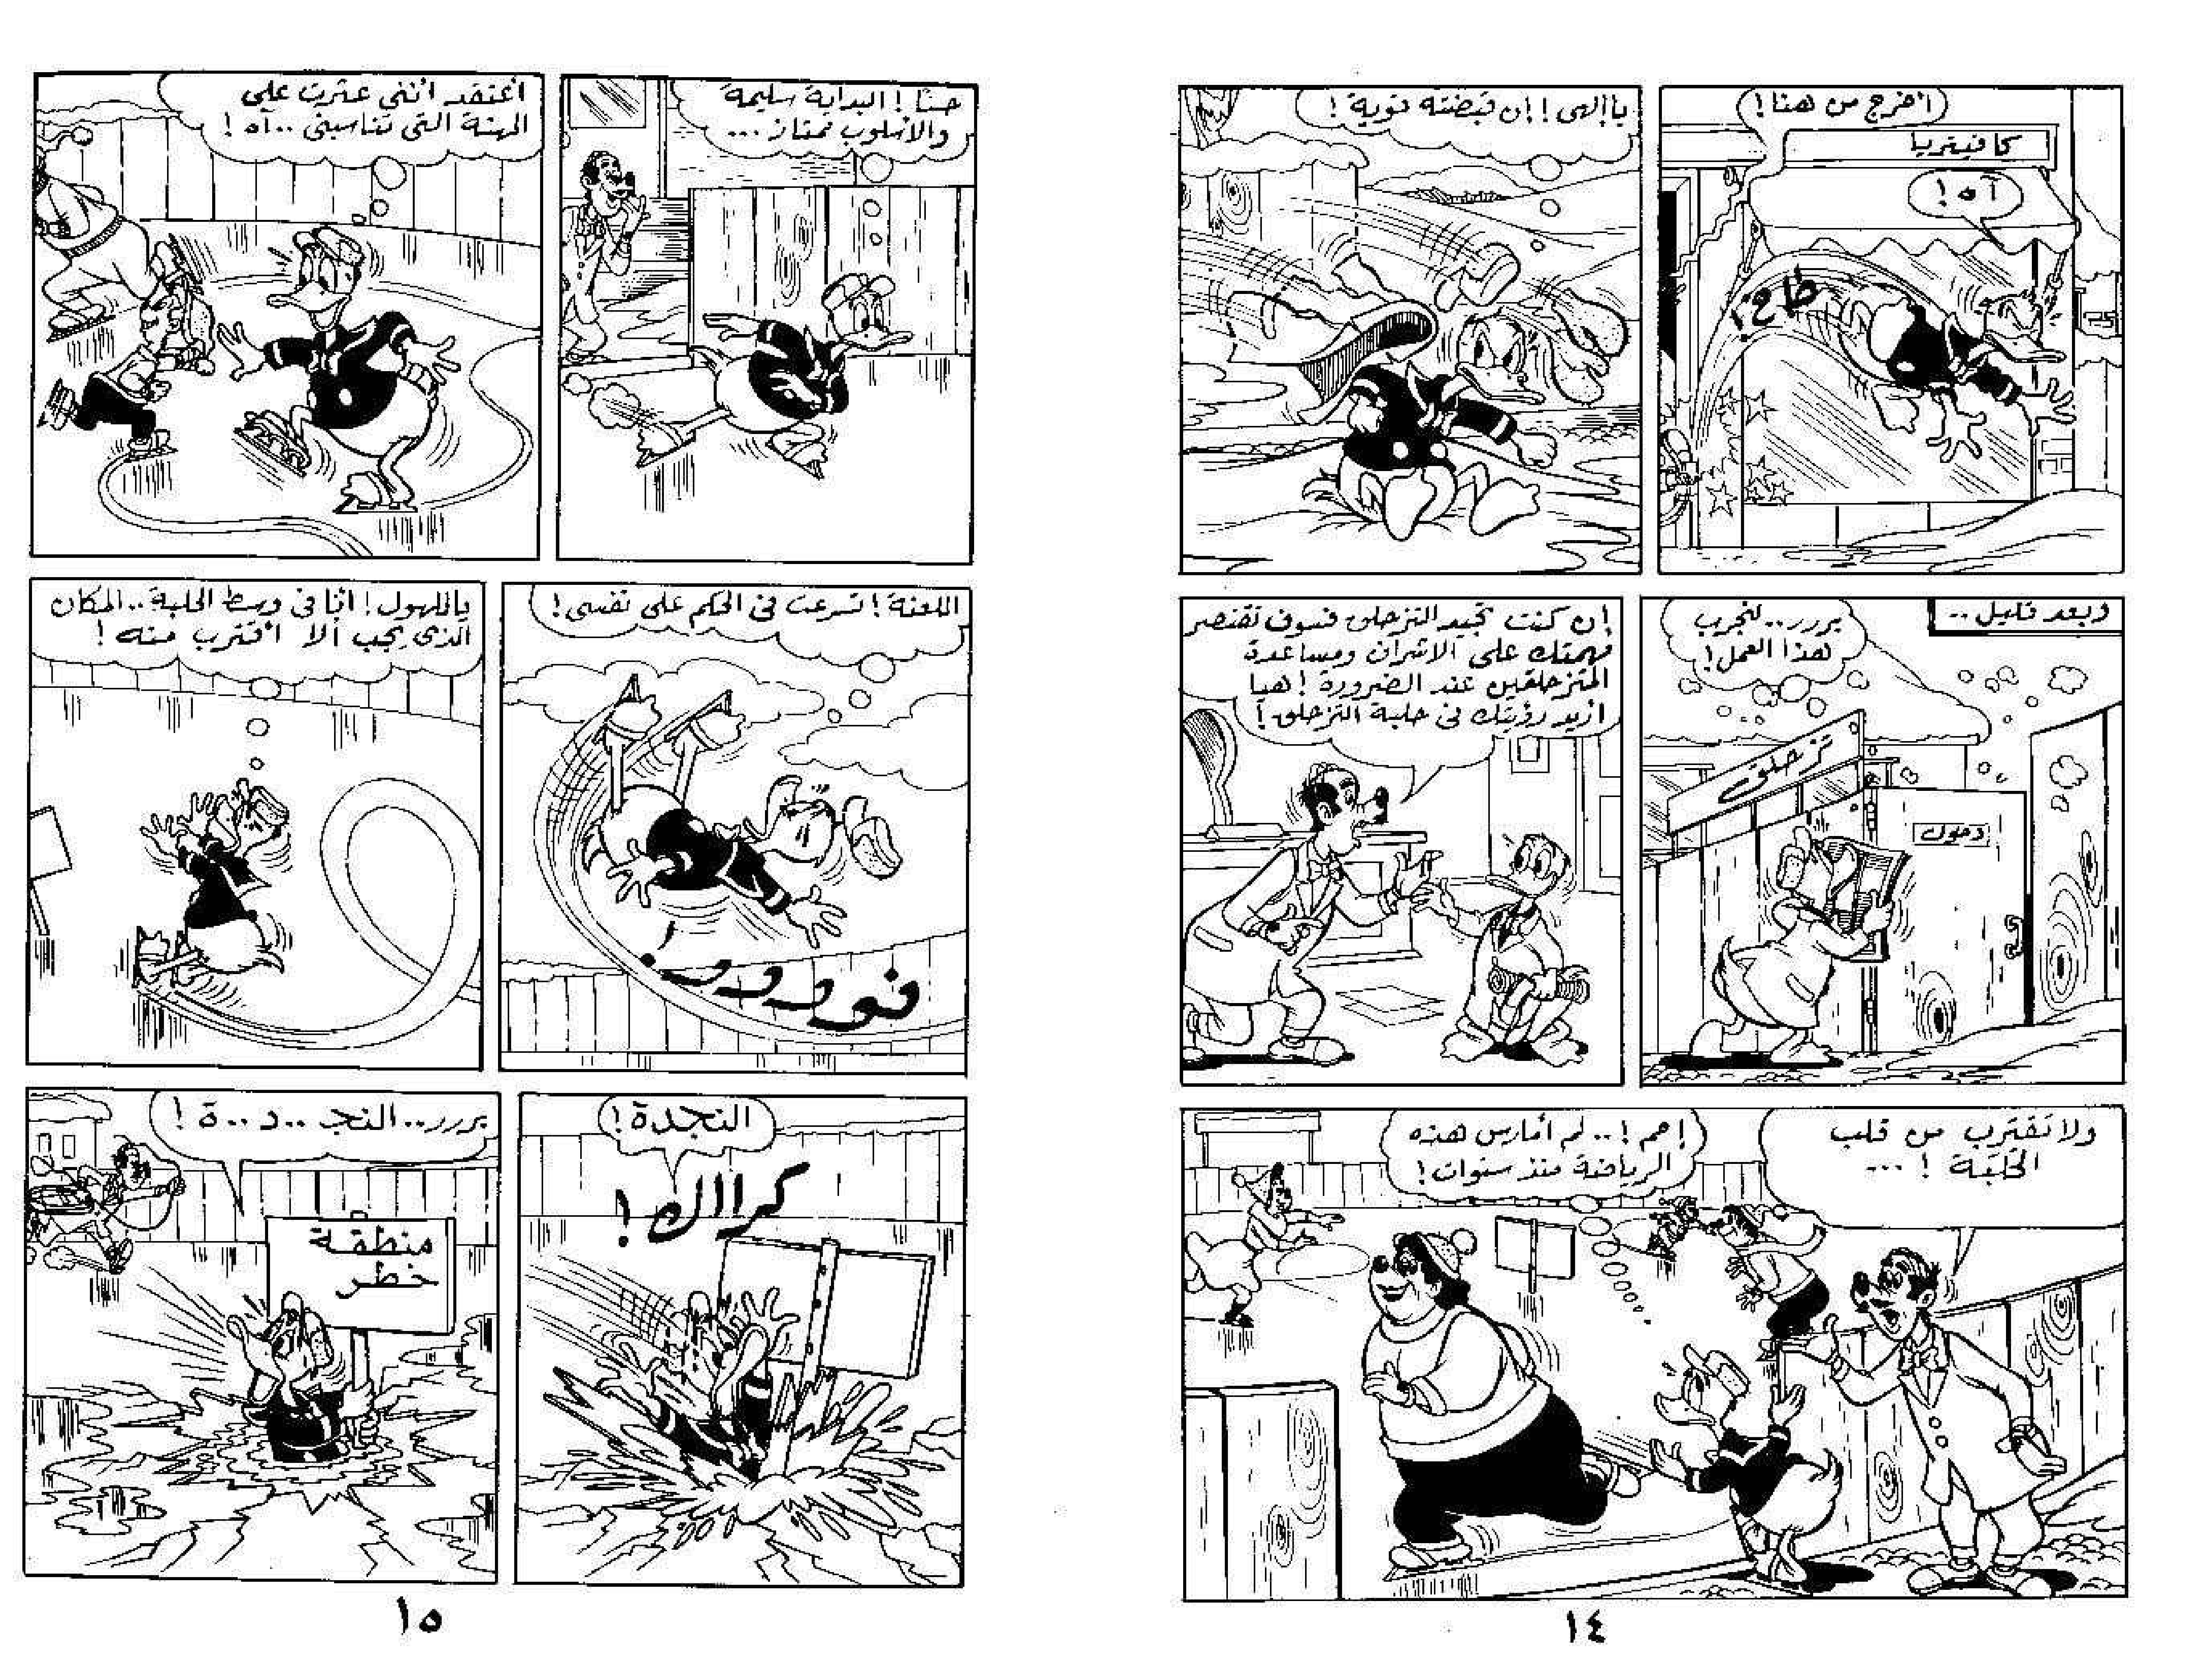 أخرج من هنا!
كافيتريا
آه!
طاخ!
ياإلهى! إن قبضته قوية!
وبعد قليل..
بررر..لنجرب
هذا العمل!
تزحلق
دخول
إن كنت تجيد التزحلق فسوف تقتصر
مهمتك على الاشراف ومساعدة
المتزحلقين عند الضرورة! هيا
اريد رؤيتك فى حلبة التزحلق!
ولا تقترب من قلب
الحلبة! ...
إحم!..لم أمارس هذه
الرياضة منذ سنوات!
١٤
حسنًا! البداية سليمة
والأسلوب ممتاز...
أعتقد أننى عثرت على
المهنة التى تناسبنى..آه!
اللعنة! تسرعت فى الحكم على نفسى!
فووووز
ياللهول! أنا فى وسط الحلبة..المكان
الذى يجب ألا أقترب منه!
النجدة!
كرااك!
بررر..النجـ..د..ة!
منطقة
خطر
١٥